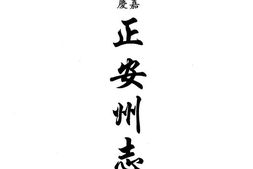 嘉慶
正安州志